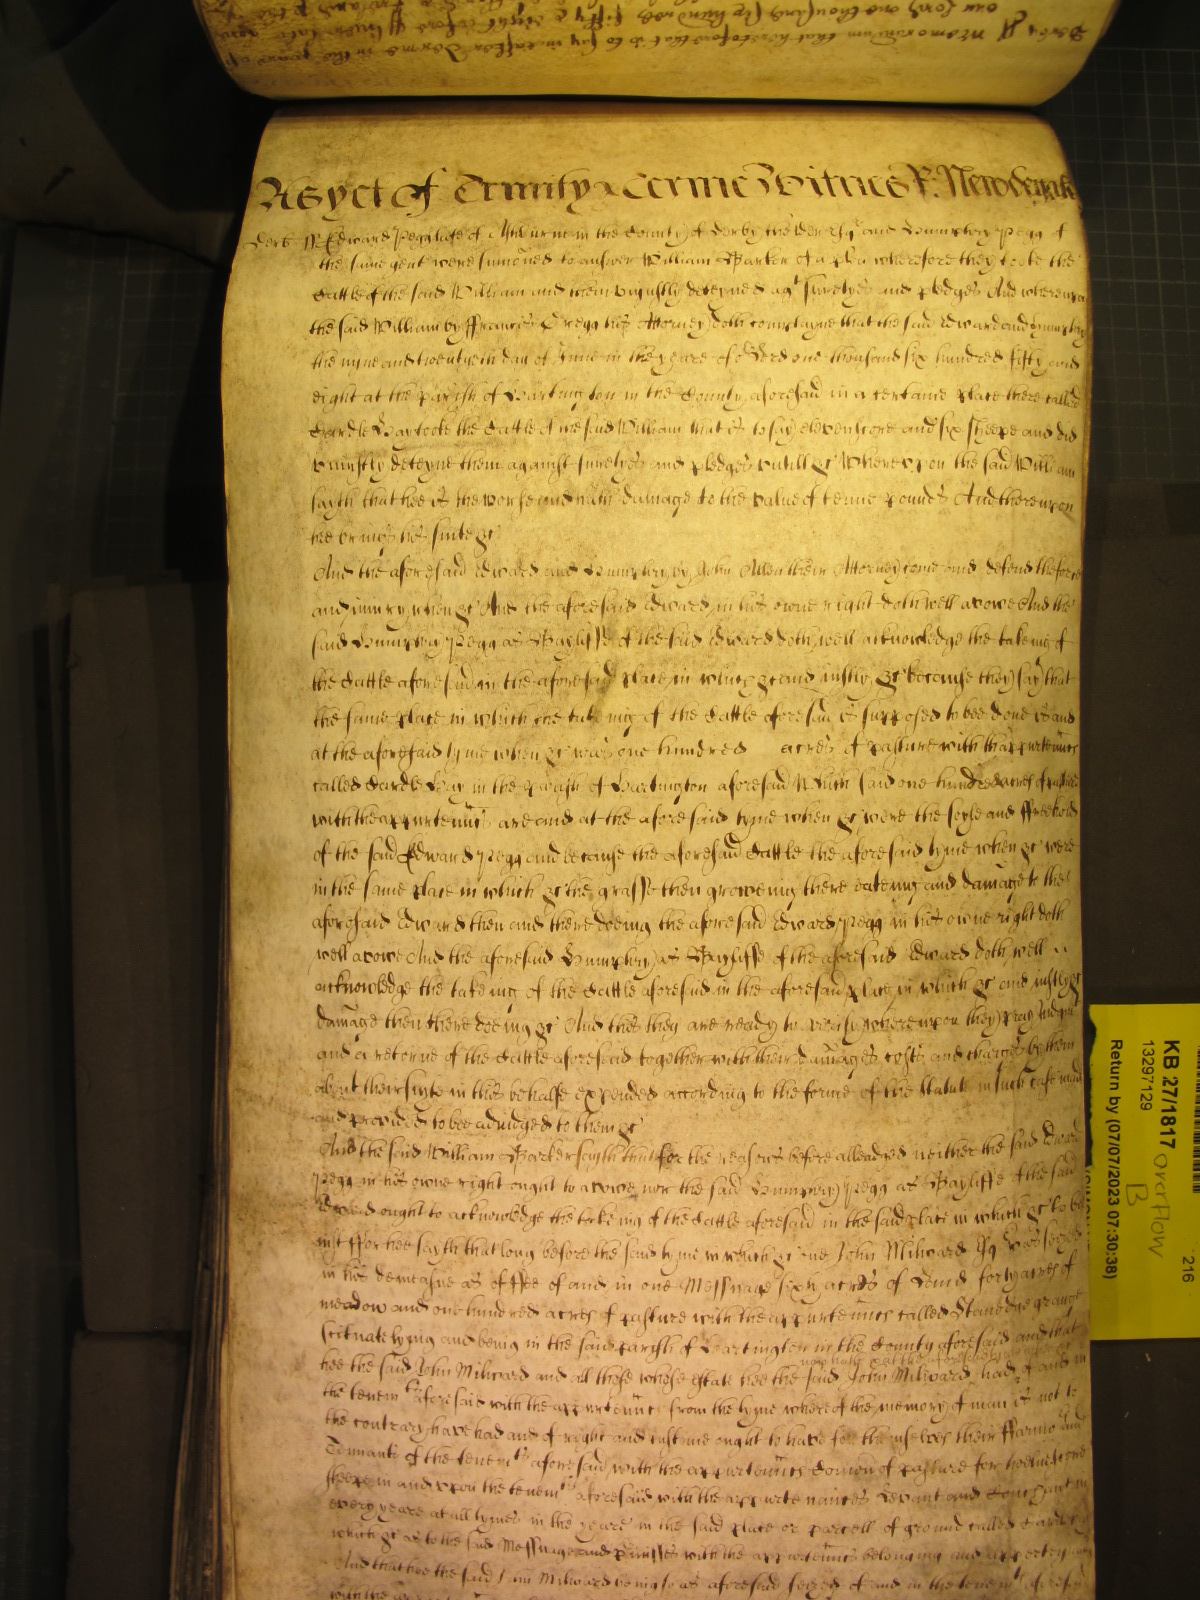 Derby ss Memorandum that heretofore that is to say in Easter Terme in the yeare of
our Lord one thousand six hundred fifty & eight before
As yet of Trinity Terme Witnes R: Newdegate
Derb ss Edward Pegg late of Ashburne in the County of Derby Esq and Humphry Pegg of
the same gent were sumoned to answer William Barker of a plea wherefore they tooke the
Cattle of the said William and them uniustly deteyned agt suretyes and pledges And whereupon
the said William by Francis Gregg his Attorney doth complayne that the said Edward and Humphry
the nyne and twentyeth day of June in the yeare of or Lord one thousand six hundred fifty and
eight at the parish of Hartington in the County aforesaid in a certaine place there called
Cardle Hay tooke the Cattle of the said William that is to say eleven score and six sheepe and did
uniustly deteyne them against suretyes and pledges untill &c Whereupon the said William
sayth that hee is the worse and hath damage to the value of tenne pounds And thereupon
hee brings his suite &c
And the aforesaid Edward and Humphry by John Allen their Attorney come and defend the force
and iniury when &c And the aforesaid Edward in his owne right doth well avowe And the
said Humphry Pegg as Bayliffe of the said Edward doth well acknowledge the taking of
the Cattle aforesaid in the aforesaid place in which &c and iustly &c because they say that
the same place in which the taking of the Cattle aforesaid is supposed to bee done is and
at the aforesaid tyme when &c was one hundred acres of pasture with thappurtenncs
called Cardle Hay in the parish of Hartington aforesaid Which said one hundred acres of pasture
with the appurtenncs are and at the aforesaid tyme when &c were the soyle and ffreehold
of the said Edward Pegg and because the aforesaid Cattle the aforesaid tyme when &c were
in the same place in which &c the grasse then groweing there eateing and damage to the
aforesaid Edward then and there doeing the aforesaid Edward Pegg in his owne right doth
well avowe And the aforesaid Humphry as Bayliffe of the aforesaid Edward doth well
acknowledge the takeing of the Cattle aforesaid in the aforesaid place in which &c and iustly &c
damage then there doeing &c And this they are ready to verify whereupon they pray Judgmt
and a retorne of the Cattle aforesaid together with their damages costs and charges by them
about their suite in this behalfe expended according to the forme of the Statute in such case made
and provided to bee adiudged to them &c
And the said William Barker sayth that for the reasons before alleadged neither the said Edward
Pegg in his owne right ought to avowe nor the said Humphry Pegg as Bayliffe of the said
Edward ought to acknowledge the takeing of the Cattle aforesaid in the said place in which &c to be
iust ffor hee sayth that long before the said tyme in which &c one John Milward Esq was seized
in his demeasne as of ffee of and in one Messuage sixty acres of Land forty acres of
meadow and one hundred acres of pasture with the appurtenncs called Stanedge grange
scituate lying and being in the said parish of Hartington in the County aforesaid and that
hee the said John Milward and all those whose estate hee the said John Milward had of and in
the tenemts aforesaid with the appurtenncs from the tyme whereof the memory of man is not to
the contrary have had and of right and custome ought to have for themselves their ffarmors and
Tennants of the tenemts aforesaid with the appurtenncs Comon of pasture for
sheepe in and upon the tenemts aforesaid with the appurtenances Levant and Couchant in
every yeare at all tymes in the yeare in the said place or parcell of ground called Cardle
which &c as to the said Messuage and premisses with the appurtenncs belonging and apperteyning
And that hee the said John Milward being so as aforesaid seized of and in the tenemts aforesaid
KB 27/1817 Overflow
B
13297129
Return by (07/07/2023 07:30:38)
216